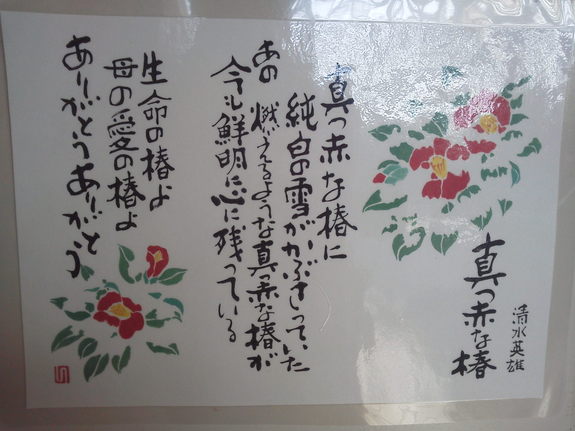 真っ赤な椿
清水英雄
真っ赤な椿に
純白の雪がかぶさっていた
あの燃えるような真っ赤な椿が
今も鮮明に心に残っている
生命の椿よ
母の愛の椿よ
ありがとうありがとう